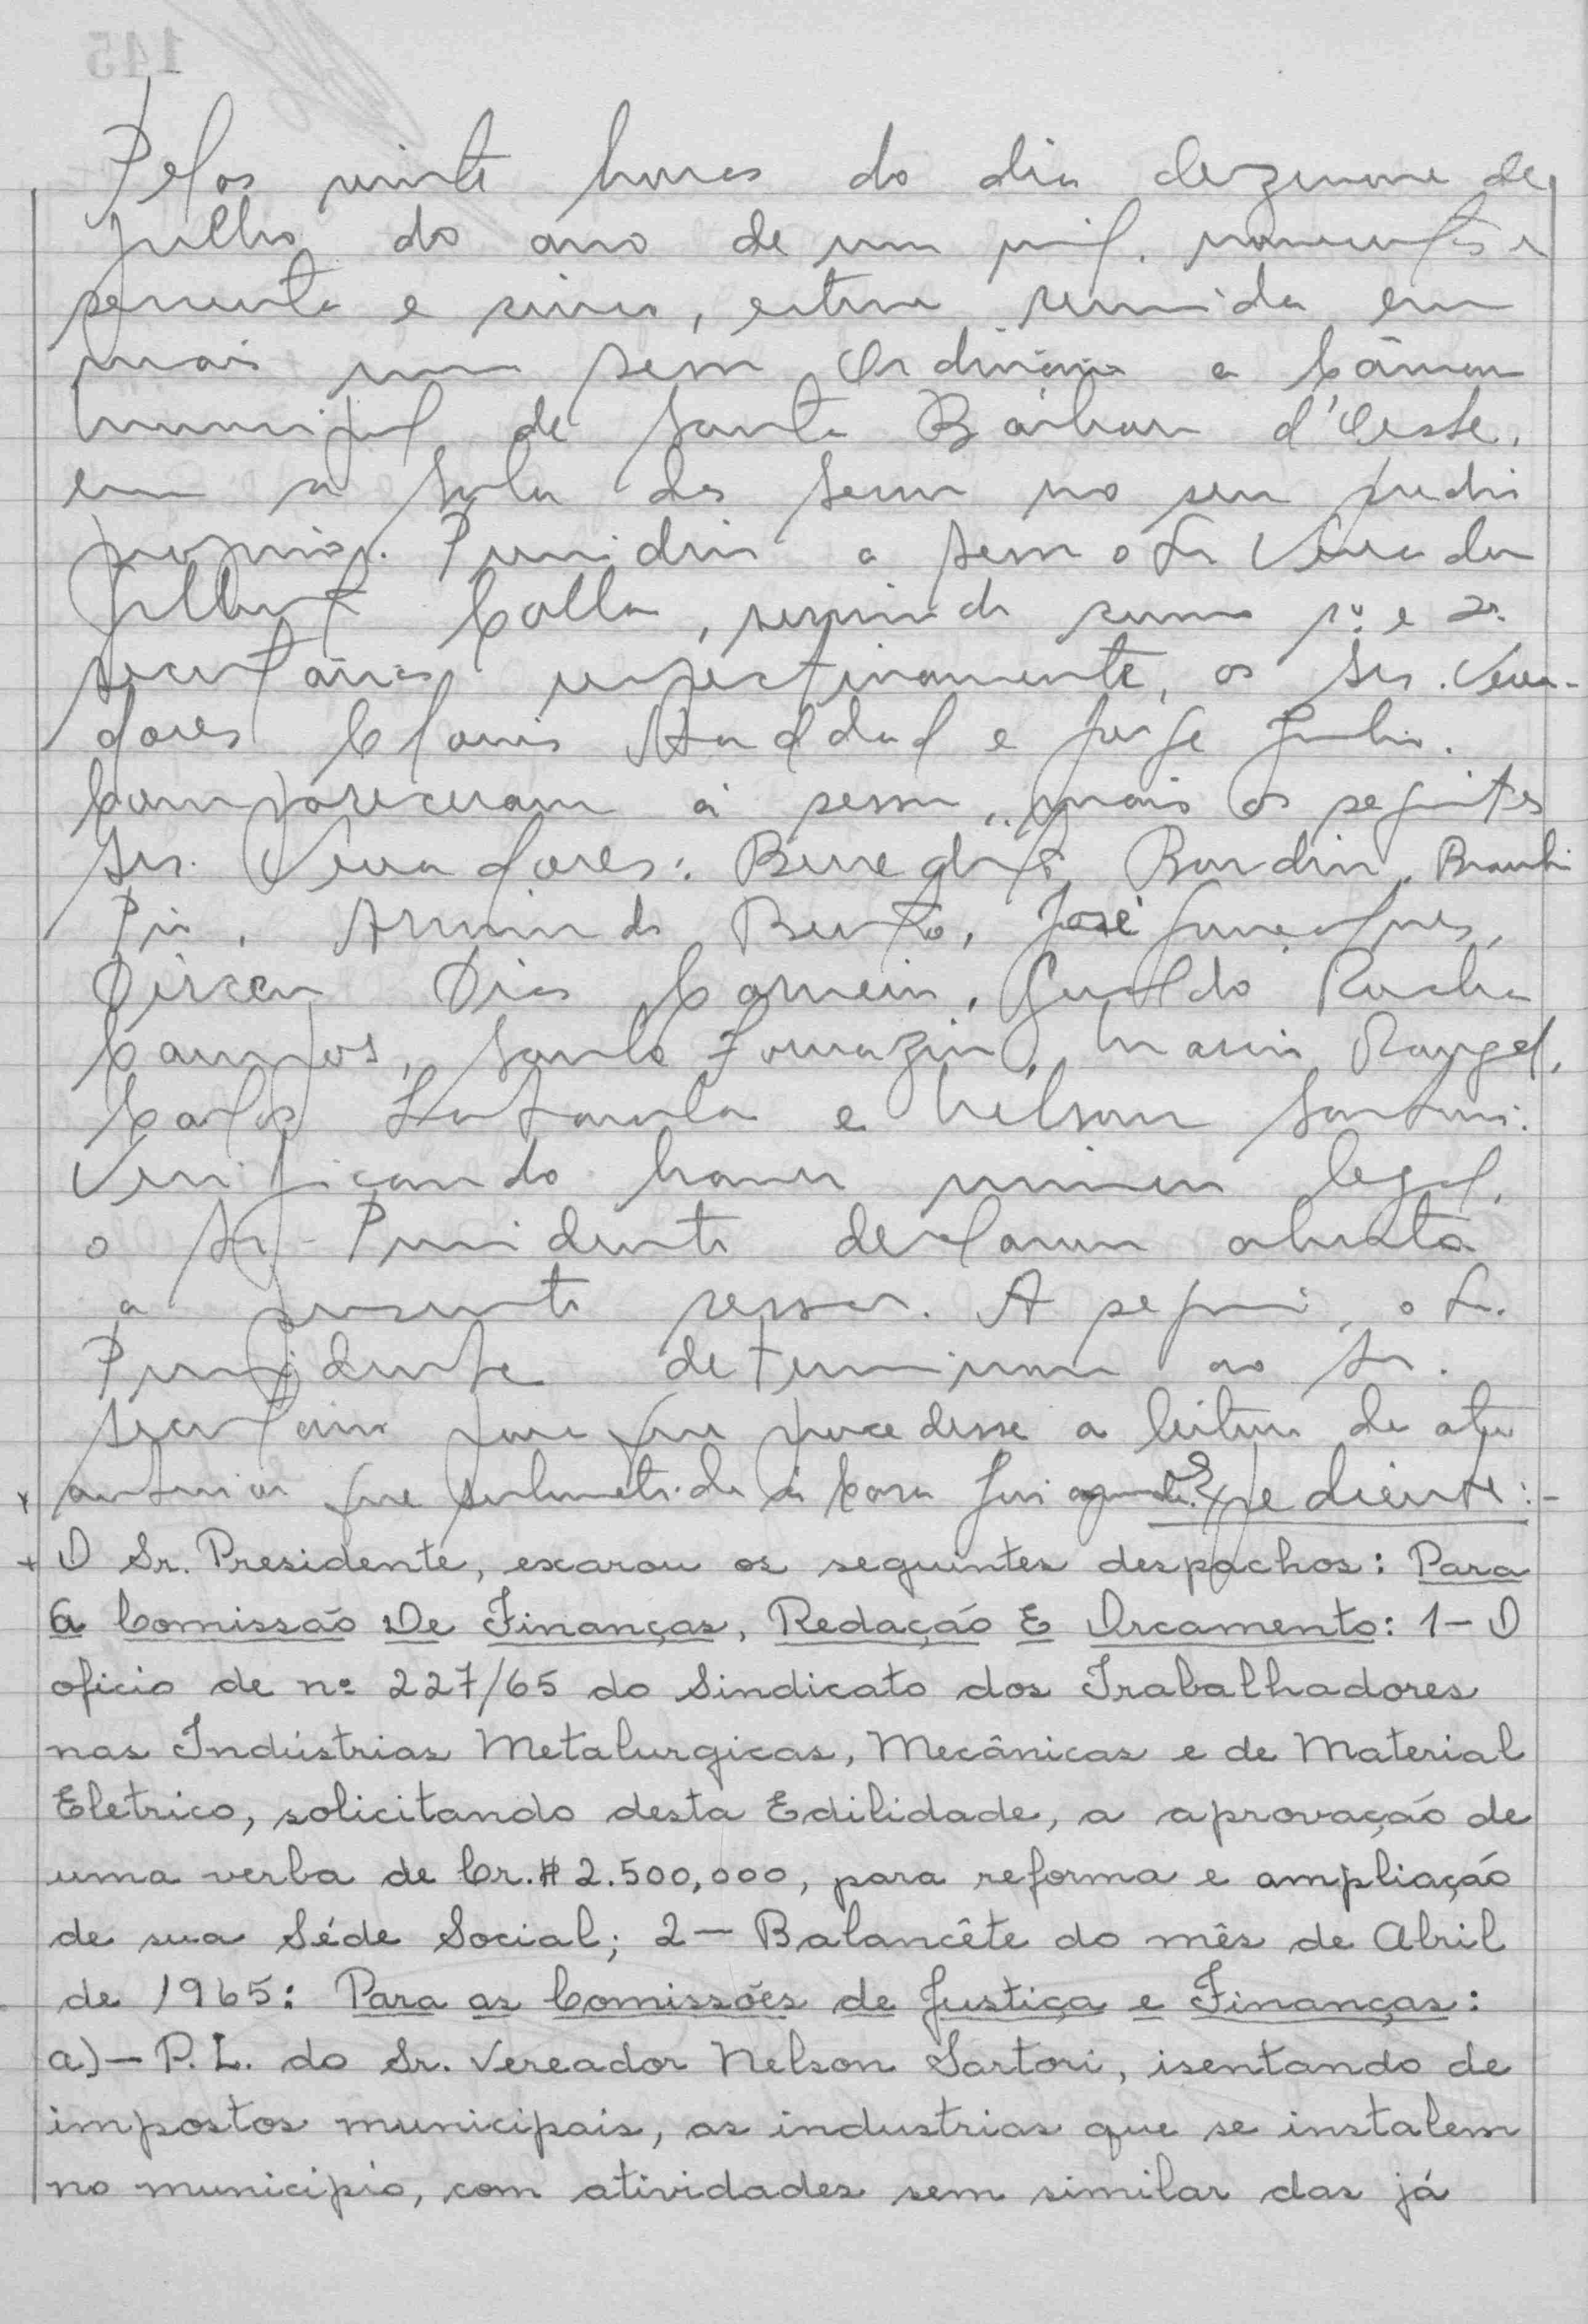 145
Pelas vinte horas do dia dezenove de
julho do ano de um mil, novecentos e
sessenta e cinco, esteve reunida em
mais uma sessão Ordinária a Câmara
Municipal de Santa Bárbara d'Oeste,
em a Sala das Sessões no seu predio
proprio. Presidiu a sessão o Sr. Vereador
Colla, servindo como 1º e 2º
secretários respectivamente, os Srs. Verea-
dores Clovis Haddad e Jorge
Compareceram à sessão, mais os seguintes
Srs. Vereadores: Benedito Bardin,
Armindo Bento, José Gonçalves,
Dirceu Dias Carneiro, Geraldo Rocha
Campos, Santo Tomazin, Mario Rangel,
Carlos e Nelson Sartori.
Verificando haver número legal,
o Sr. Presidente declarou aberta
a presente sessão. A seguir, o Sr.
Presidente determinou ao Sr.
Secretário para que procedesse a leitura da ata
anterior que submetida à Casa foi aprovada. Expediente:-
O Sr. Presidente, exarou os seguintes despachos: Para
a Comissão De Finanças, Redação E Orcamento: 1- O
oficio de nº 227/65 do Sindicato dos Trabalhadores
nas Indústrias Metalurgicas, Mecânicas e de Material
Eletrico, solicitando desta Edilidade, a aprovação de
uma verba de Cr.$ 2.500,000, para reforma e ampliação
de sua Séde Social; 2- Balancête do mês de Abril
de 1965: Para as Comissões de Justiça e Finanças:
a)- P.L. do Sr. Vereador Nelson Sartori, isentando de
impostos municipais, as industrias que se instalem
no municipio, com atividades sem similar das já